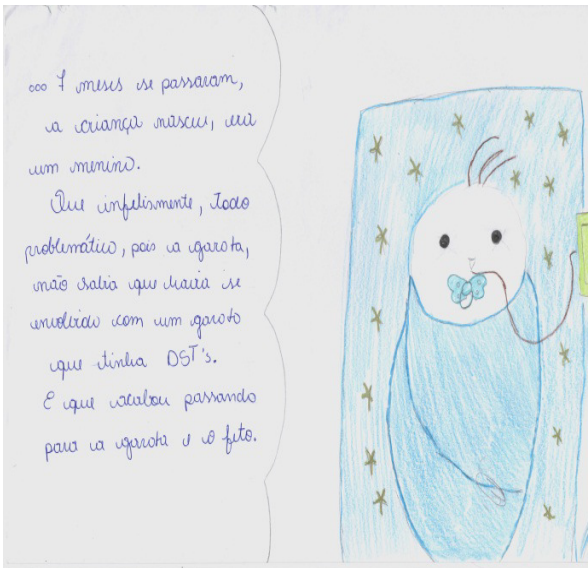 ooo 7 meses se passaram,
a criança nasceu, era
um menino.
Que infelismente, todo
problemático, pois a garota,
não sabia que havia se
envolvido com um garoto
que tinha DST's.
E que acabou passando
para a garota e o feto.